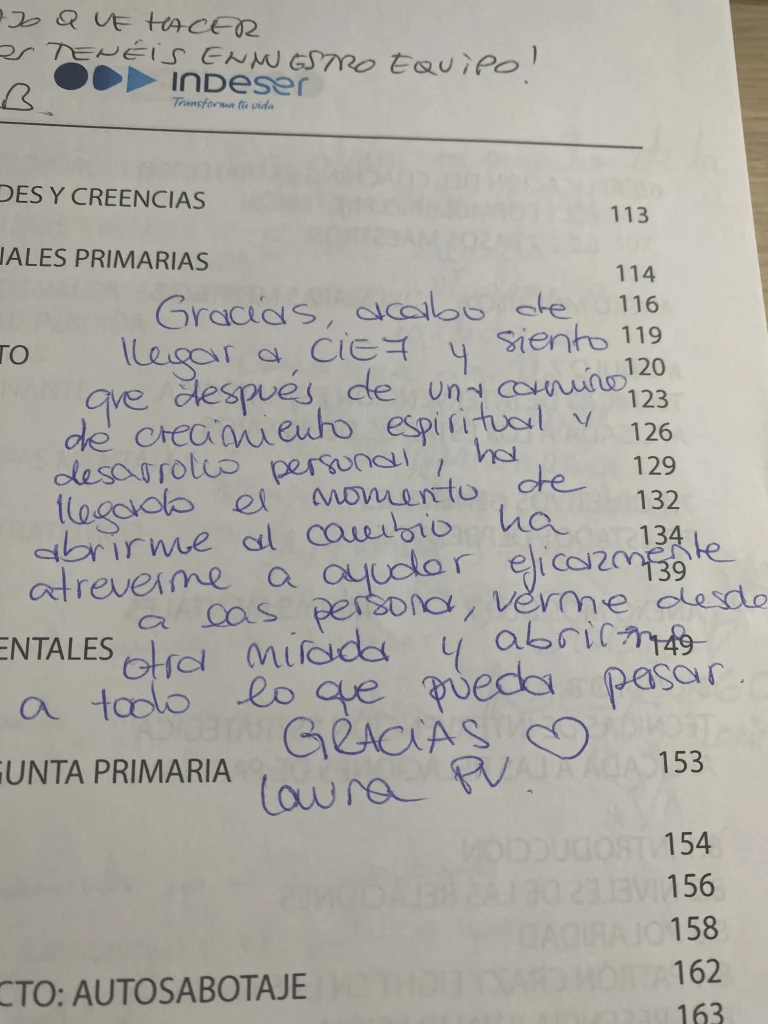 QUE HACER
TENÉIS EN NUESTRO EQUIPO!
B.
INDeser
Transforma tu vida
DES Y CREENCIAS
113
IALES PRIMARIAS
114
116
119
TO
120
123
126
129
132
134
139
Gracias, acabo de
llegar a CIE7 y siento
que después de un camino
de crecimiento espiritual y
desarrollo personal, ha
llegado el momento de
abrirme al cambio ha
atreverme a ayudar eficazmente
a las persona, verme desde
otra mirada y abrirme
a todo lo que pueda pasar.
GRACIAS ♡
Laura PV.
ENTALES
149
GUNTA PRIMARIA
153
154
156
158
162
CTO: AUTOSABOTAJE
163